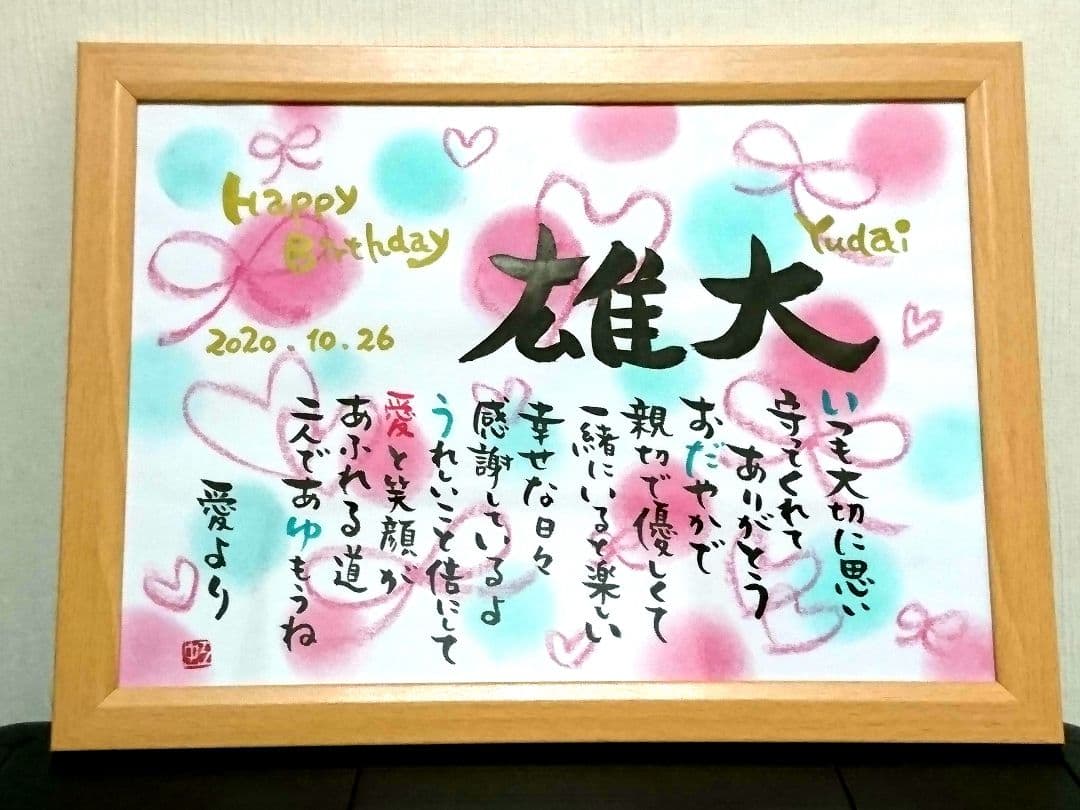 Happy
Birthday
2020.10.26
Yudai
雄大
いつも大切に思い
守ってくれて
ありがとう
おだやかで
親切で優しくて
一緒にいると楽しい
幸せな日々
感謝しているよ
うれしいこと倍にして
愛と笑顔が
あふれる道
二人であゆもうね
愛より